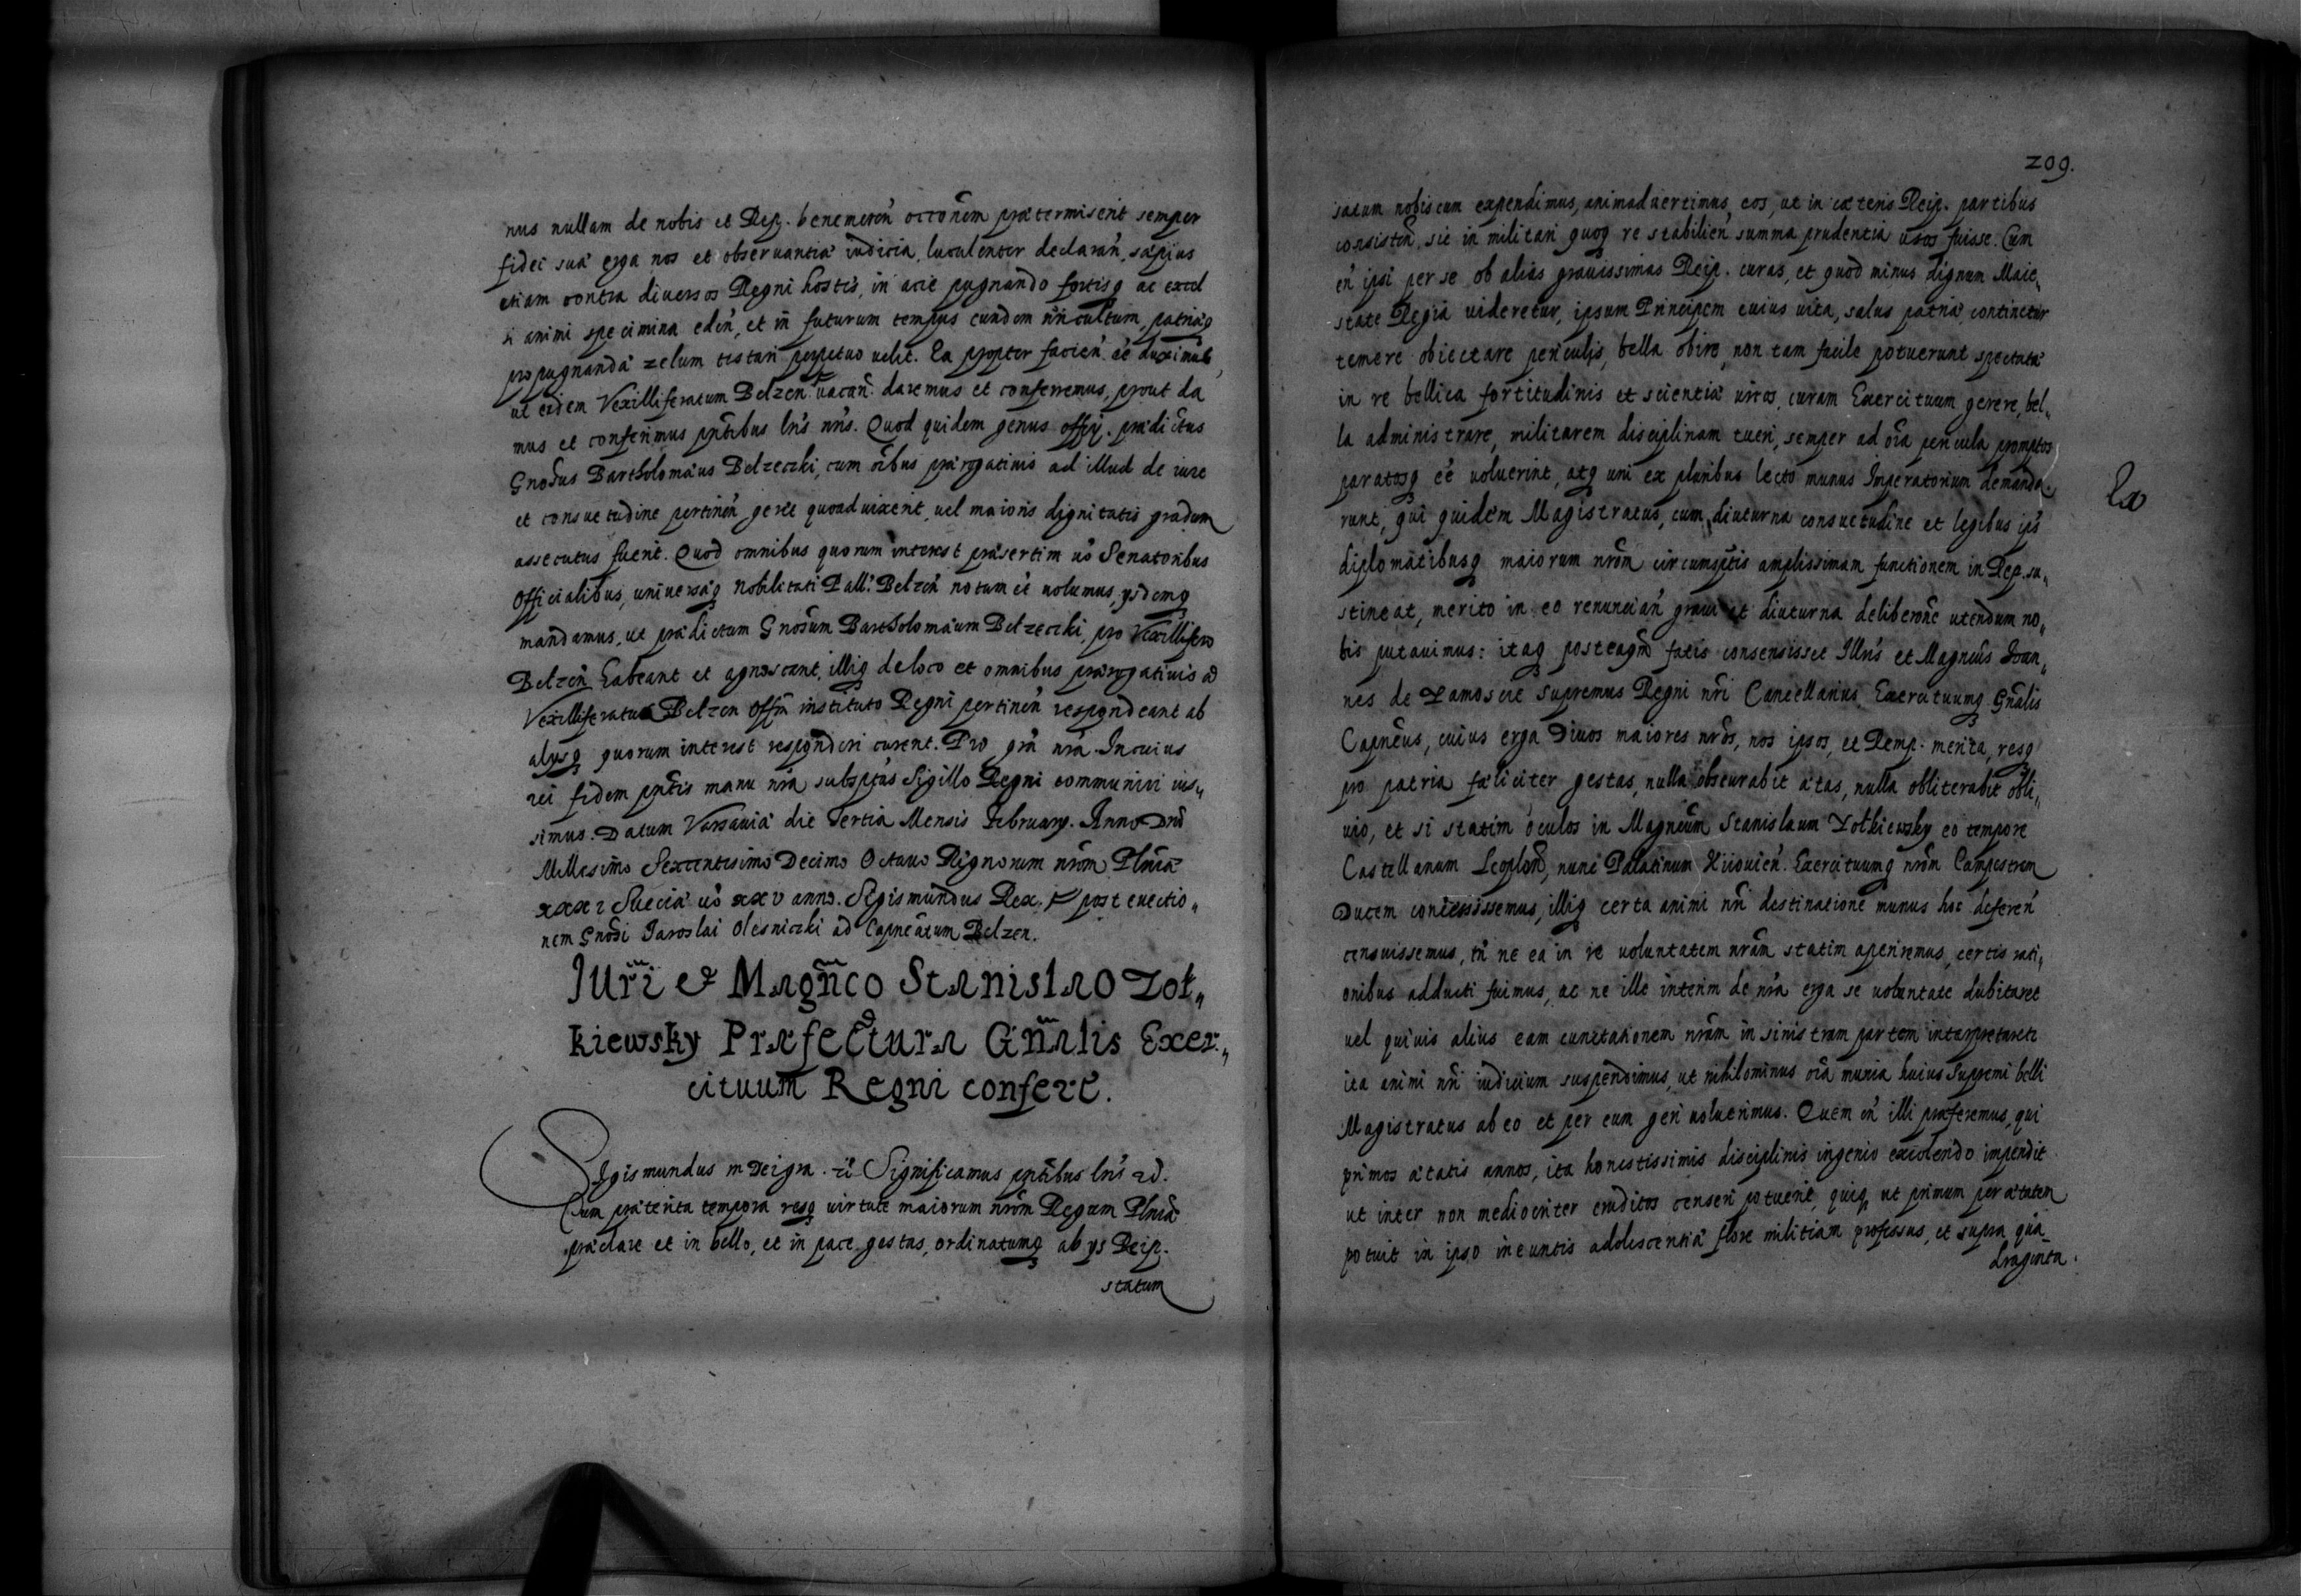 nus nullam de nobis et Rep. benemeren̄ occōnem prætermiserit semper
fidei suæ erga nos et observantiæ iudicia, luculenter declaran̄, sæpius
etiam contra diversos Regni hostes, in acie pugnando fortisq ac excel
si animi specimina eden̄, et in futurum tempus eundem nr̄i cultum, patriæq
propugnandæ zelum testari perpetuo velit. Ea propter facien̄ eē duximus,
ut eidem Vexilliferatum Belzen. vacan̄. daremus et conferremus, prout da
mus et conferimus pn̄tibus lr̄is nr̄is. Quod quidem genus offīj. prædictus
Gnosus Bartholomæus Belzeczki, cum oībus prærogativis ad illud de iure
et consuetudine pertinen̄ geret quoad vixerit, vel maioris dignitatis gradum
assecutus fuerit. Quod omnibus quorum interest præsertim vō Senatoribus
Officialibus, universæq Nobilitati Pall. Belzen̄ notum eē volumus, ysdemq
mandamus, ut prædictum Gnosum Bartholomæum Belzeczki, pro Vexillifero
Belzen̄ habeant et agnoscant, illiq de loco et omnibus prærogativis ad
Vexilliferatum Belzen offm̄ instituto Regni pertinen̄ respondeant ab
alysq quorum interest responderi curent. Pro grā nrā. In cuius
rei fidem pn̄tis manu nrā subsptas Sigillo Regni communiri ius„
simus. Datum Varsaviæ die Tertia Mensis February. Anno Dn̄i
Millesimo Sexcentesimo Decimo Octavo Regnorum nrōm Plniæ
xxxi Sueciæ vō xxv anno. Sigismundus Rex. post evectio„
nem Gnosi Jaroslai Olesniczki ad Capneātum Belzen.
Illr̄i & Magn̄co Stanislao Zoł„
kiewsky Præfectura Gn̄alis Exer„
cituum Regni confert.
Sigismundus III Dei gra. Significamus pn̄tibus lr̄is
Cum præterita tempora resq virtute maiorum nrōm Regum Plniæ
præclare et in bello, et in pace gestas, ordinatumq ab ys Reip.
statum
209.
satum nobiscum expendimus, animadvertimus, eos, ut in cæteris Reip. partibus
consisten̄, sic in militari quoq re stabilien̄ summa prudentia usos fuisse. Cum
en̄ ipsi per se ob alias gravissimas Reip. curas, et quod minus dignum Maie„
state Regia videretur, ipsum Principem cuius vita, salus patriæ, continetur
temere obiectare periculis, bella obire, non tam facile potuerunt spectatæ
in re bellica fortitudinis et scientiæ viros, curam Exercituum gerere, bel„
la administrare, militarem disciplinam tueri, semper ad oīa pericula promptos
paratosq eē voluerint, atq uni ex pluribus lecto munus Imperatorium demanda„
runt, qui quidem Magistratus, cum diuturna consuetudine et legibus ips
diplomatibusq maiorum nrōm circumsptis amplissimam functionem in Rep. su„
stineat, merito in eo renuncian̄ gravi et diuturna deliberōne utendum no„
bis putavimus: itaq posteaqm̄ fatis consensisset Illris et Magncus Joan„
nes de Zamoscie Supremus Regni nr̄i Cancellarius Exercituumq Gn̄alis
Capneus, cuius erga Divos maiores nrōs, nos ipsos, et Remp. merita, resq
pro patria fæliciter gestas, nulla obscurabit ætas, nulla obliterabit obli„
vio, et si statim oculos in Magncum Stanislaum Zołkiewsky eo tempore
Castellanum Leoplen̄, nunc Palatinum Kiiovien̄. Exercituumq nrōm Campestrem
Ducem coniecissemus, illiq certa animi nr̄i destinatione munus hoc deferen̄
censuissemus, tn̄ ne ea in re voluntatem nrām statim aperiremus, certis rati„
onibus adducti fuimus, ac ne ille interim de nrā erga se voluntate dubitaret
vel quivis alius eam cunctationem nrām in sinistram partem interpretaretr
ita animi nr̄i iudicium suspendimus, ut nihilominus oīa munia huius supremi belli
Magistratus ab eo et per eum geri voluerimus. Quem en̄ illi præferemus, qui
primos ætatis annos, ita honestissimis disciplinis ingenio excolendo impendit
ut inter non mediocriter eruditos censeri potuerit, quiq ut primum per ætatem
potuit in ipso ineuntis adolescentiæ flore militiam professus, et supra qua
draginta.